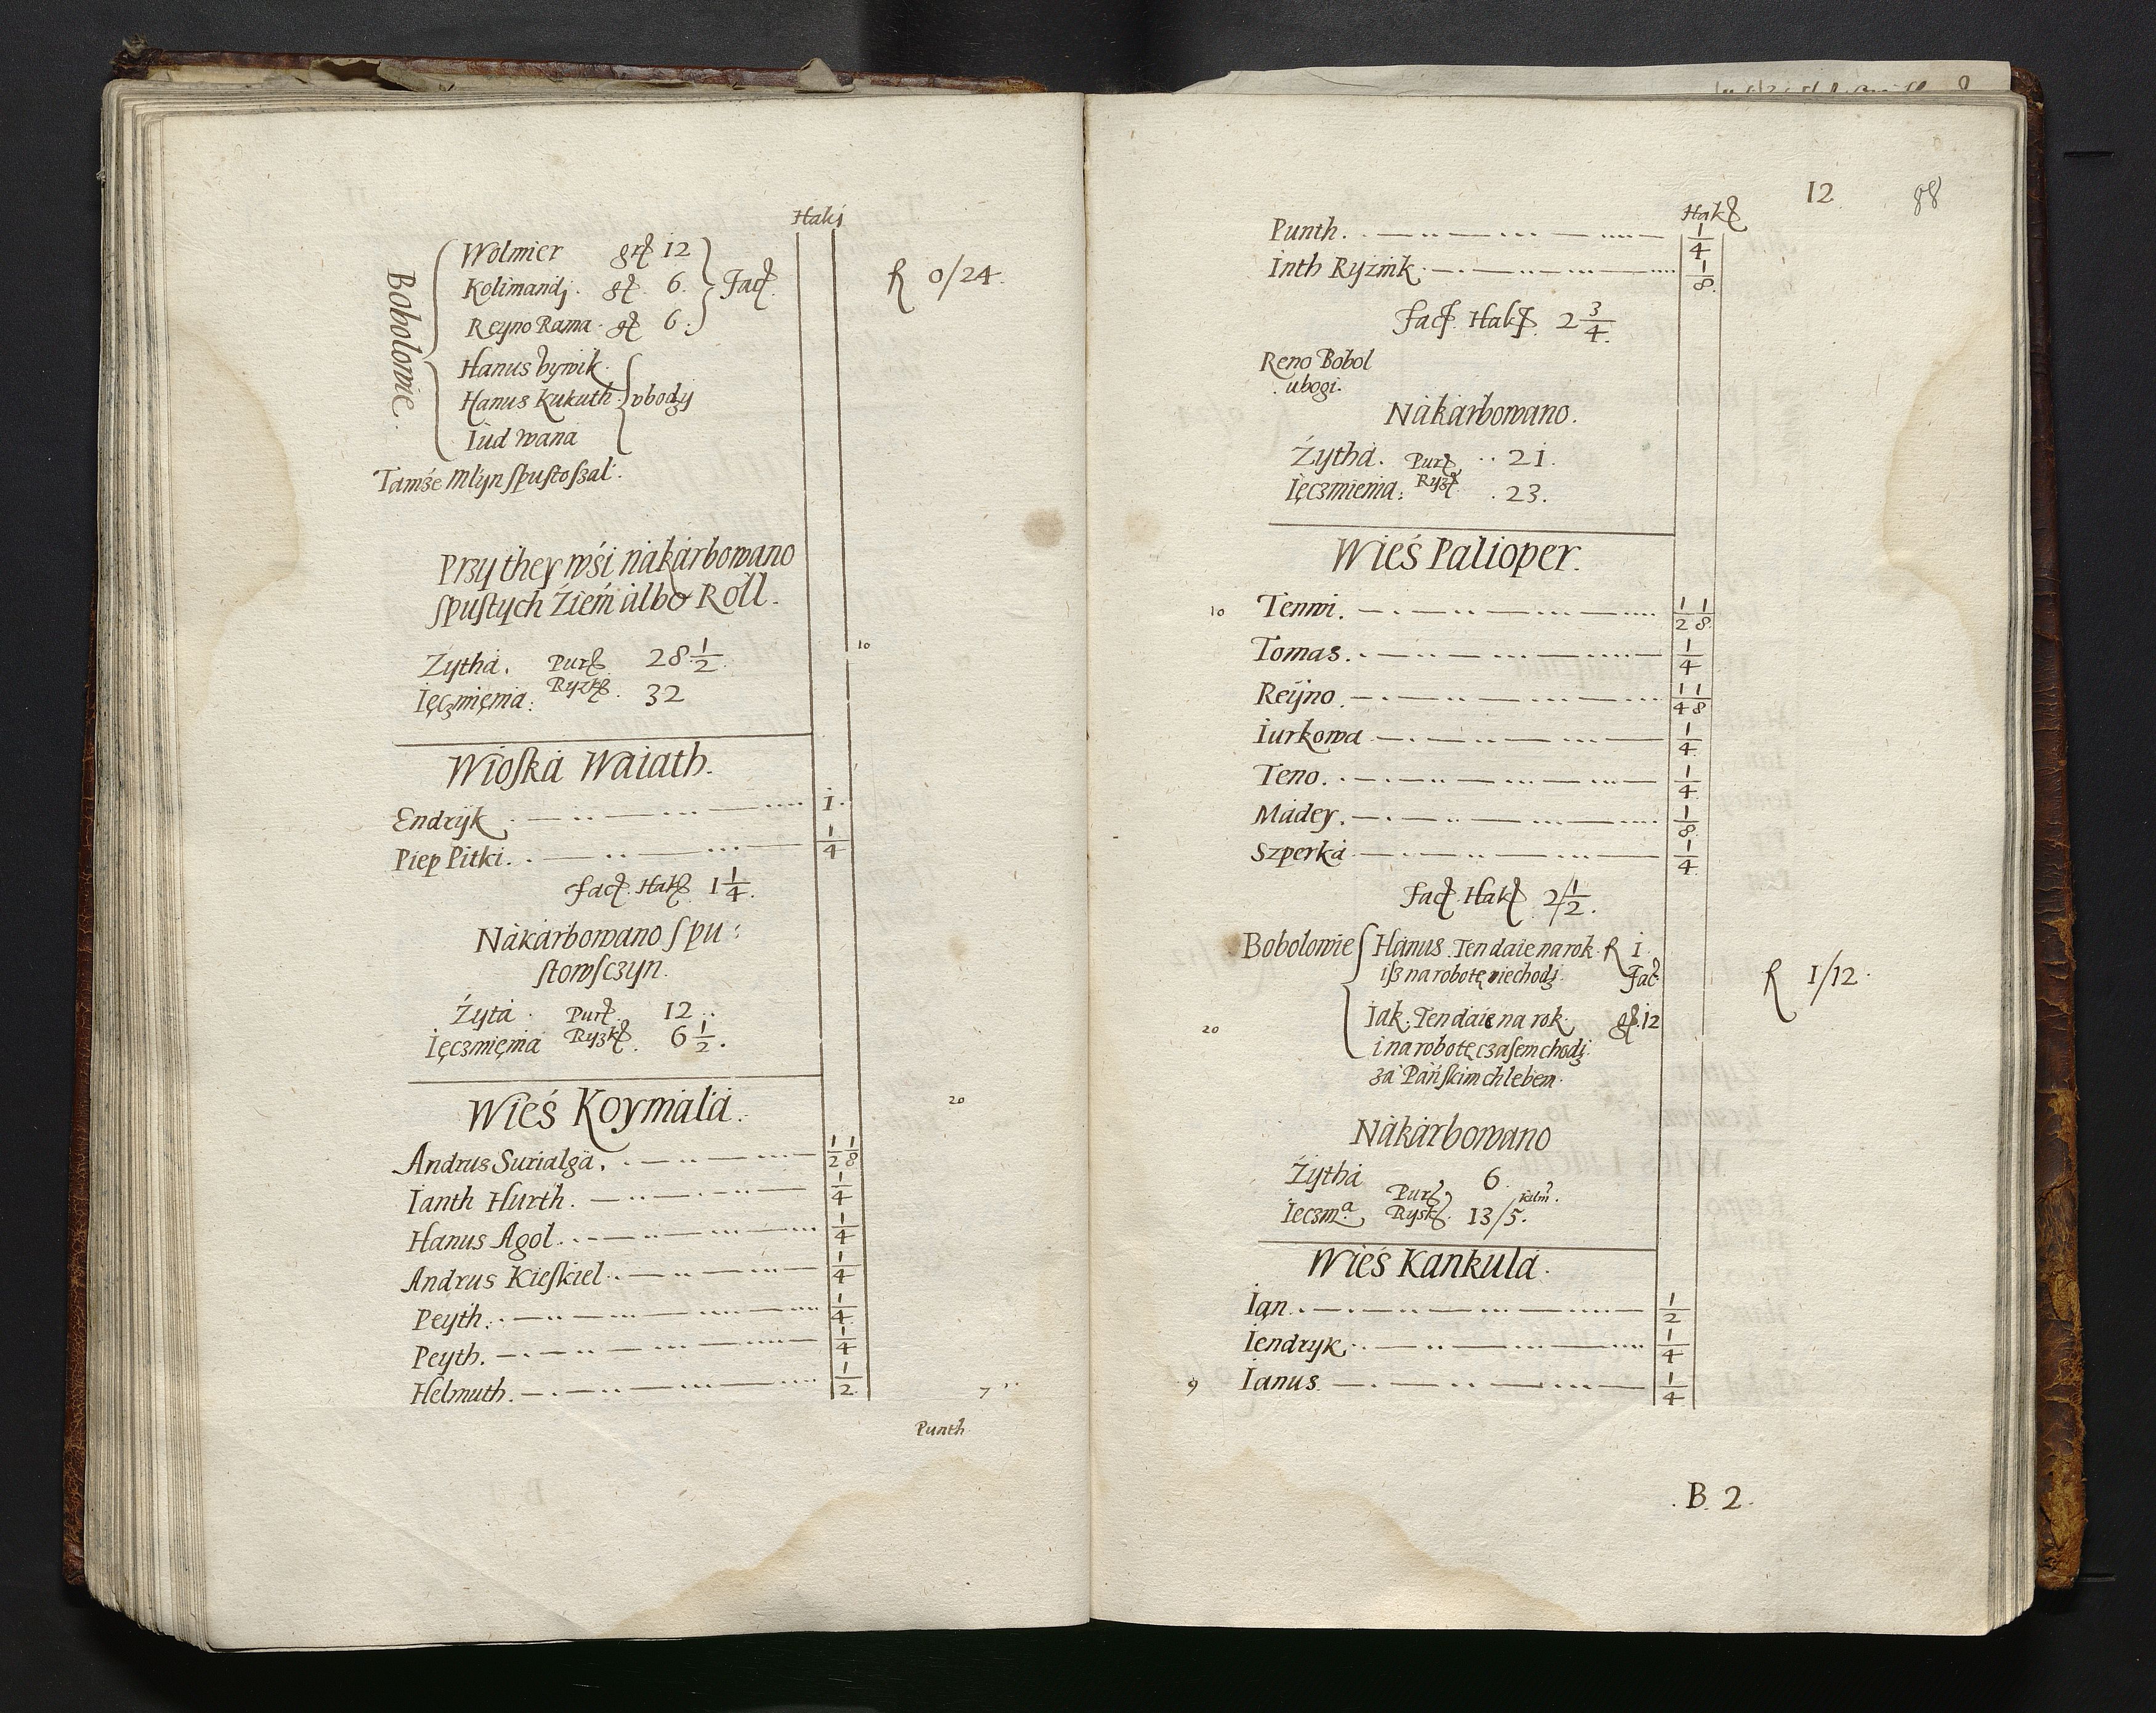 Haki
Bobolowie.
Wolmier grꝭ 12
Kolimandj. gꝭ 6. Facꝭ.
Reyno Rama. gꝭ 6.
ꝶ 0/24.
Hanus bywik.
Hanus Kukuth vbodzy
Iud wana
Tamże Mlyn ſpuſtoſzal.
Przy they wśi nakarbowano
ſpuſtych Źiem albo Roll.
10
Zytha. Purꝭ 28 1/2
Ięczmięnia: Ryzkꝭ. 32
Wioſka Waiath.
Endryk 1.
Piep Pitki. 1/4
facꝭ. Hakꝭ 1 1/4.
Nakarbowano ſpu:
ſtowſczyn.
Żyta. Purꝭ. 12.
Ięczmięnia Ryzkꝭ. 6 1/2.
Wieś Koymala.
20
Andrus Surialga. 1/2 1/8
Ianth Hurth. 1/4
Hanus Agol. 1/4
Andrus Kieſkiel. 1/4
Peyth. 1/4
Peyth. 1/4
Helmuth. 1/2
7
Punth
12 88
Hakꝭ
Punth. 1/4
Inth Ryzmk. 1/8.
facꝭ. Hakꝭ. 2 3/4.
Reno Bobol
ubogi.
Nakarbowano.
Żytha. Purꝭ 21.
Ięczmienia: Ryzꝭ. 23.
Wieś Palioper.
10 Tenwi. 1/2 1/8
Tomas. 1/4
Reyno. 1/4 1/8
Iurkowa 1/4
Teno. 1/4
Madey. 1/8
Szperka 1/4
facꝭ. Hakꝭ 2 1/2.
Bobolowie Hanus. Ten daie na rok. ꝶ 1.
iſz na robotę niechodzi. Fac.
ꝶ 1/12.
20 Iak. Ten daie na rok. gꝭ. 12
i na robotę czaſem chodzi
za Pańſkim chlebem.
Nakarbowano
Żytha Purꝭ 6.
Ieczmᵃ. Ryskꝭ. 13/5. kulm.
Wieś Kankula.
Ian. 1/2
Iendryk. 1/4
9 Ianus. 1/4
B. 2.